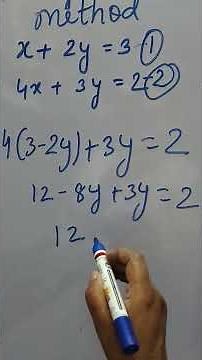 method
x + 2y = 3 - ①
4x + 3y = 2 - ②
4(3-2y)+3y=2
12-8y+3y=2
12